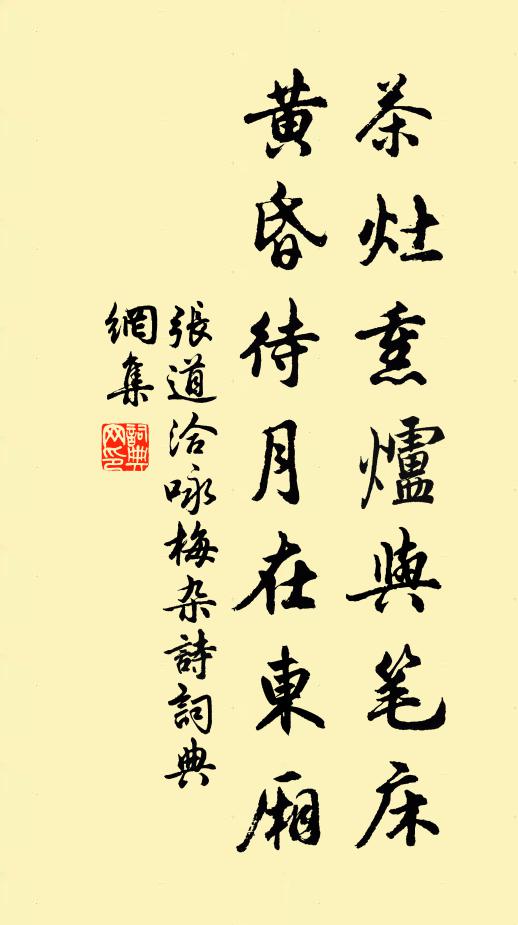 茶灶熏爐與笔床
黄昏待月在東厢
張道洽咏梅杂詩詞典
網集
詞典網印